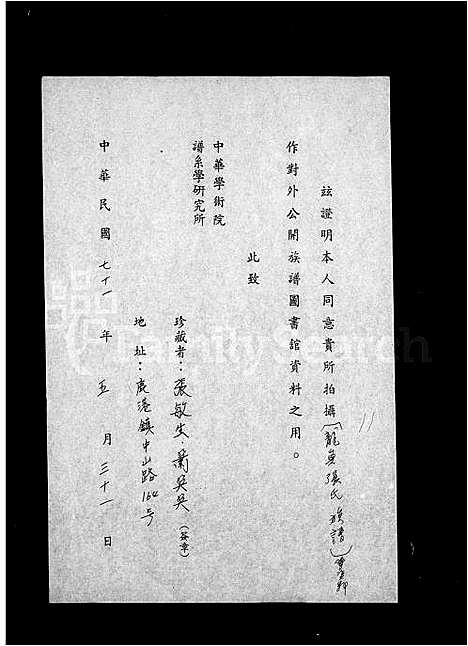 茲證明本人同意貴所拍攝(龍與張氏族譜)
作對外公開族譜圖書館資料之用。
此致
中華學術院
譜系學研究所
珍藏者:張敏生.蕭吳吳(簽章)
地址:鹿港鎮中山路164号
中華民國七十一年五月三十一日
11
Family Search